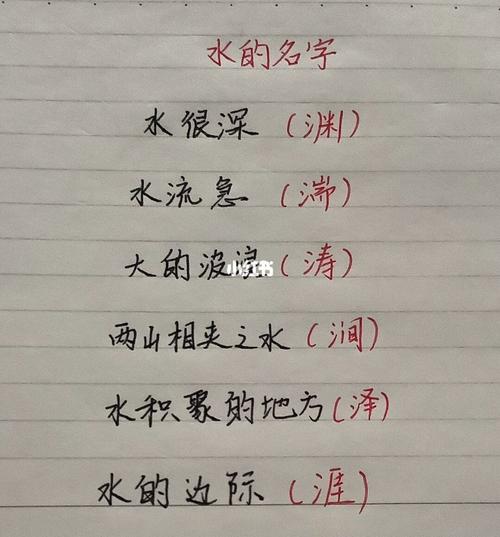 水的名字
水很深（渊）
水流急（湍）
大的波浪（涛）
小红书
两山相夹之水（涧）
水积聚的地方（泽）
水的边际（涯）